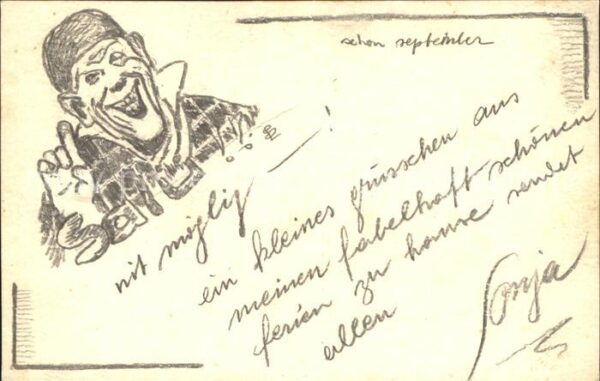 schon september
nit möglig — !
ein kleines grüsschen aus
meinen fabelhaft schönen
ferien zu hause sendet
allen
Sonja